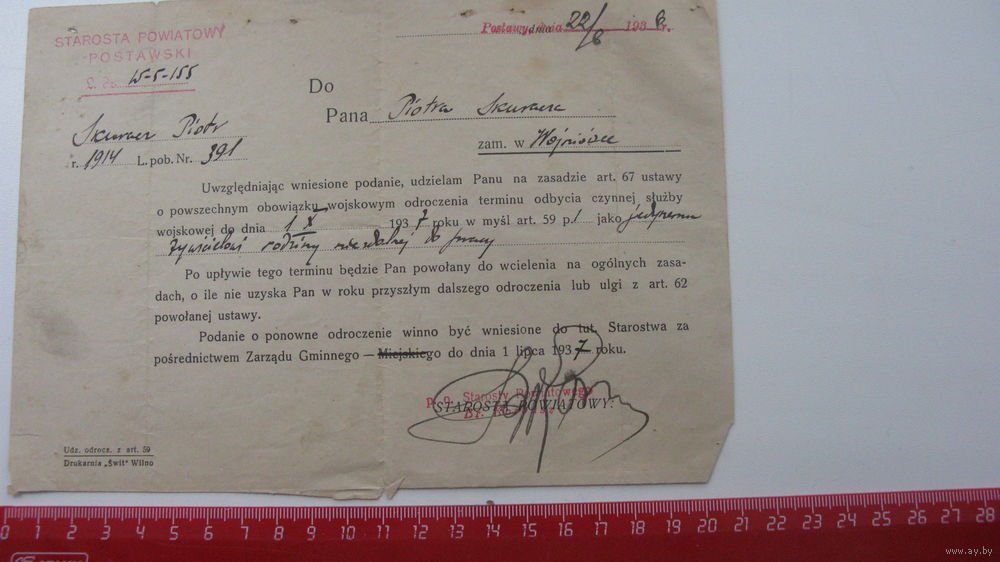 STAROSTA POWIATOWY
POSTAWSKI
15-5-155
Postawy, dnia 22/6 1936 r.
Do
Pana Piotra
zam. w
Piotr
r. 1914 L. pob. Nr. 391
Uwzględniając wniesione podanie, udzielam Panu na zasadzie art. 67 ustawy
o powszechnym obowiązku wojskowym odroczenia terminu odbycia czynnej służby
wojskowej do dnia 1 X 1937 roku w myśl art. 59 p. 1 jako jedynemu
żywicielowi rodziny niezdolnej do pracy
Po upływie tego terminu będzie Pan powołany do wcielenia na ogólnych zasa-
dach, o ile nie uzyska Pan w roku przyszłym dalszego odroczenia lub ulgi z art. 62
powołanej ustawy.
Podanie o ponowne odroczenie winno być wniesione do tut. Starostwa za
pośrednictwem Zarządu Gminnego — Miejskiego do dnia 1 lipca 1937 roku.
p. o. Starosty Powiatowego
STAROSTA POWIATOWY:
Udz. odrocz. z art. 59
Drukarnia „Świt" Wilno
0 1 2 3 4 5 6 7 8 9 10 11 12 13 14 15 16 17 18 19 20 21 22 23 24 25 26 27 28
www.ay.by